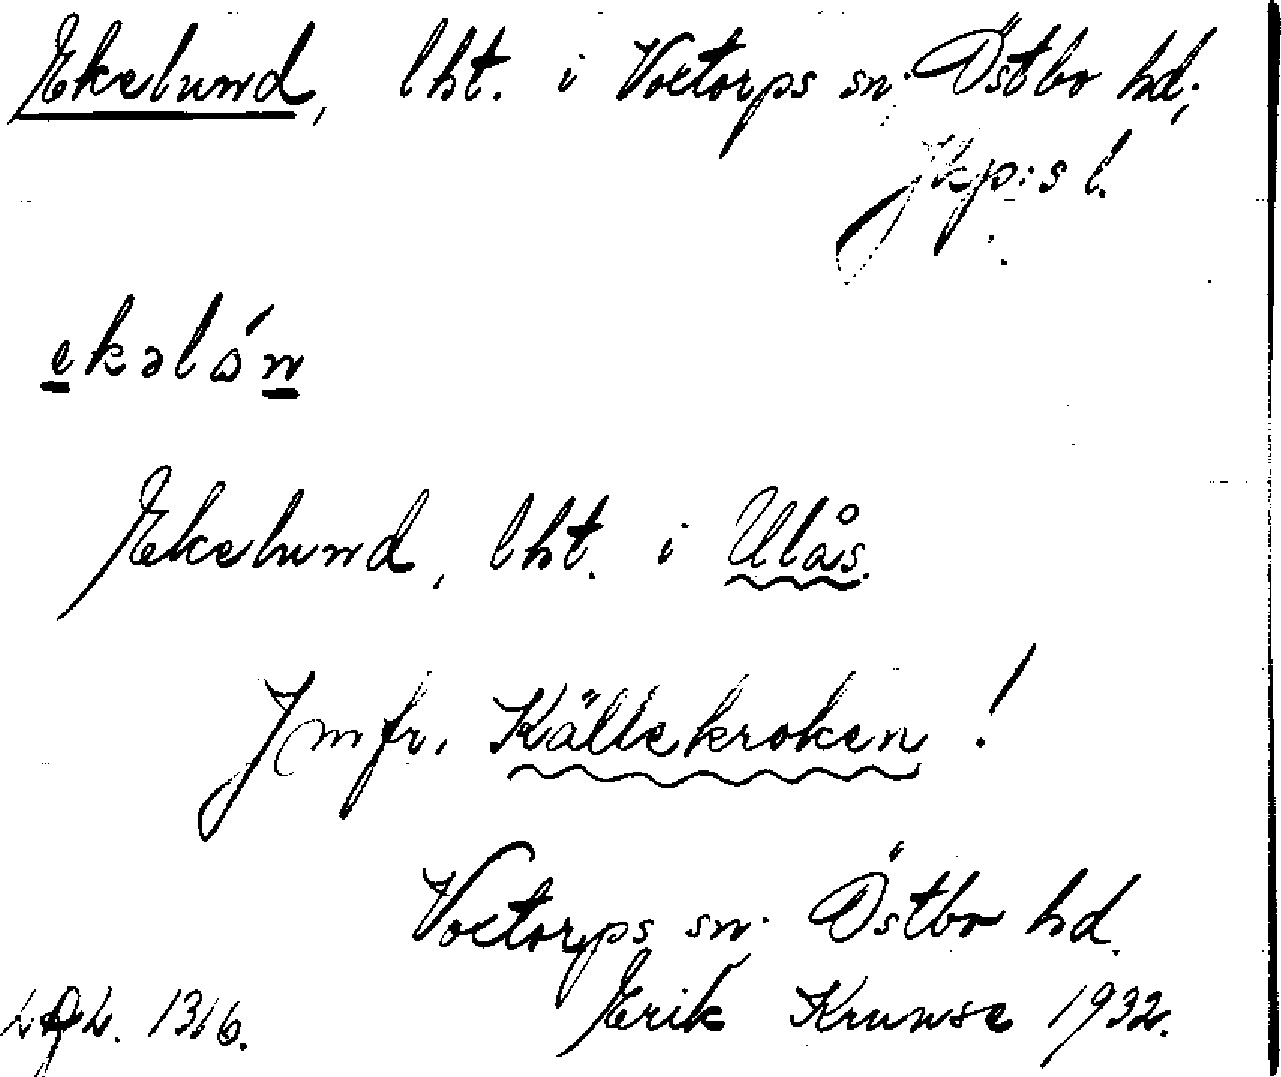 Ekelund, lht. i Voxtorps sn. Östbo hd;
Jkp:s l.
ekəlón
Ekelund, lht. i Ulås.
Jmfr. Källekroken!
Voxtorps sn. Östbo hd.
Erik Krunse 1932.
1316.